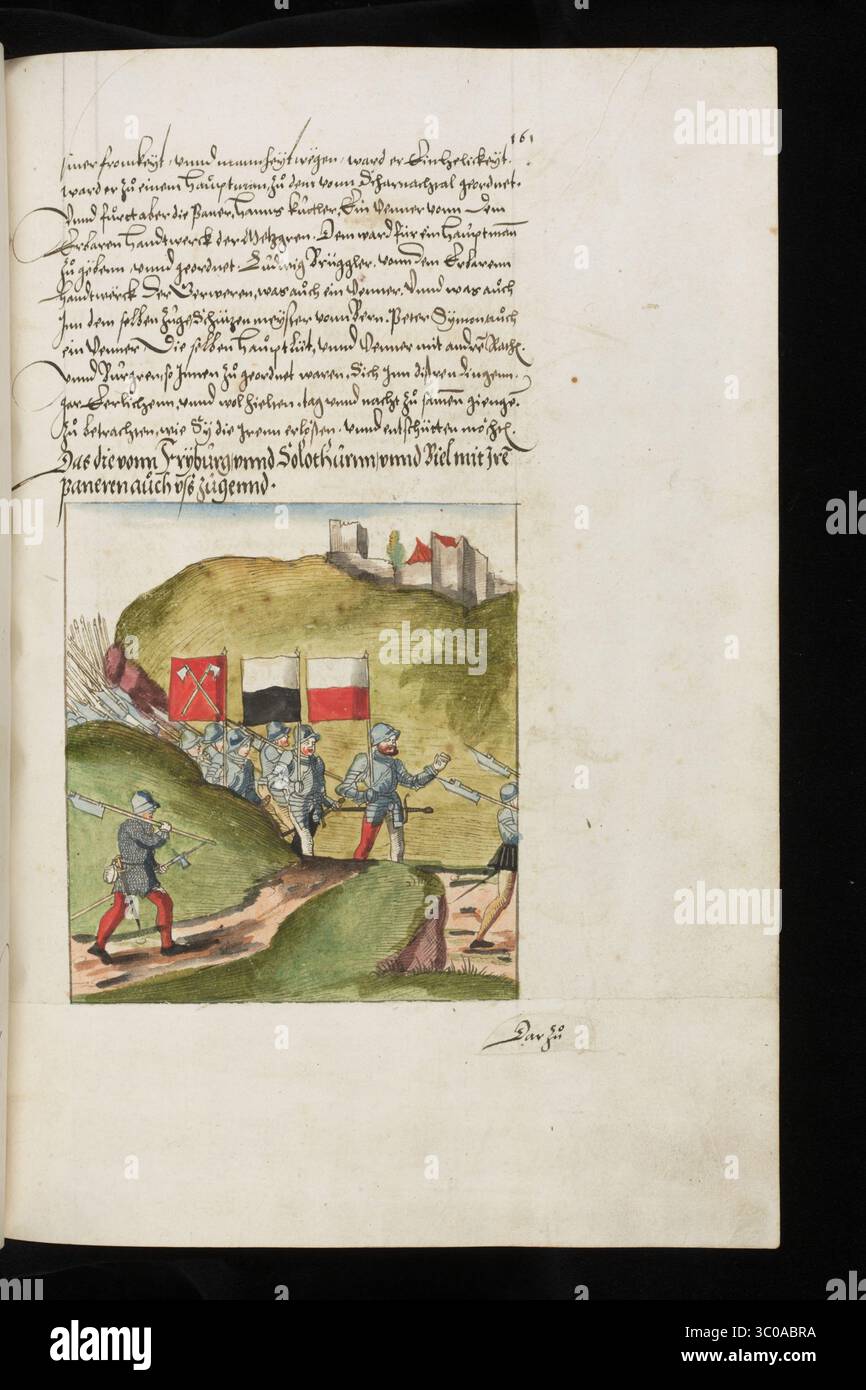 161
siner fromkeÿt, vnnd mannheÿt wegen, ward er Einhelickeÿt.
ward er zů einem haüptman, zů dem vonn Scharnachtal geordnet.
Vnnd fůrct aber die Paner, hanns kuttler, Ein Venner vonn dem
Erbaren handtwerck der Metzgren. Dem ward für ein haüptman
zů geben, vnnd geordnet. Lŭdwig Brŭggler, vonn dem Erbarenn
handtwerck Der Gerweren, was auch ein Venner, Vnnd was auch
Inn dem selben zuge Schützen meÿster vom Bern. Peter Sÿmon auch
ein Venner Die selben haŭptlüt, vnnd Venner mit andrē Räth.
Vnnd Bŭrgren, so Innen zů geordnet waren, Sich Inn disen dingenn
gar Eerlichenn, vnnd wol hielten, tag vnnd nacht zů samen gienge
zů betrachten, wie Sÿ die Irenn erlösten, vnnd entschütten möcht
Das die vonn Frÿburg vnnd Solothŭrnn vnnd Biel mit Irē
paneren auch vß zŭgennd.
Dar zů
alamy
a
alamy
Image ID: 3C0ABRA
www.alamy.com